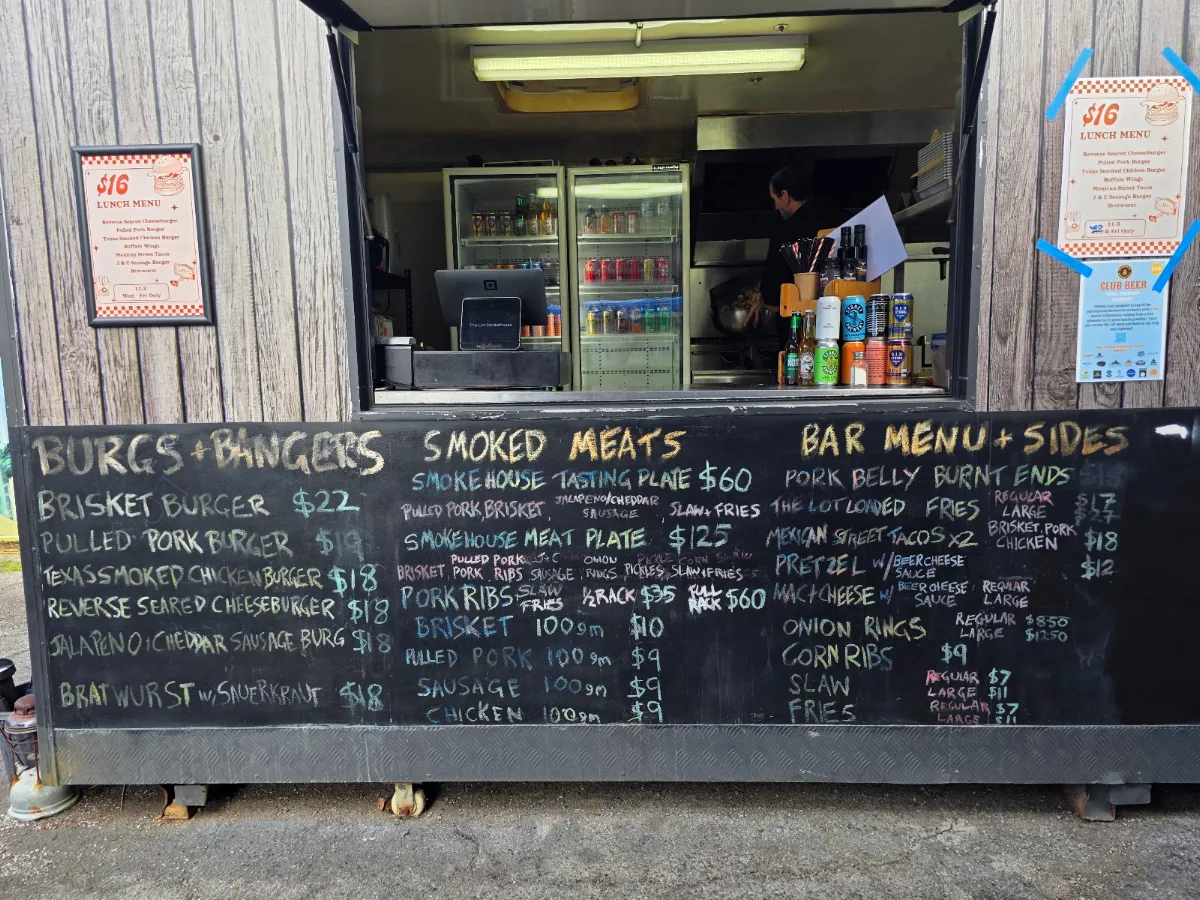 $16
LUNCH MENU
Reverse Seared Cheeseburger
Pulled Pork Burger
Texas Smoked Chicken Burger
Buffalo Wings
Mexican Street Tacos
J & C Sausage Burger
Bratwurst
Wed Fri Only
The Lot Smokehouse
$16
LUNCH MENU
Reverse Seared Cheeseburger
Pulled Pork Burger
Texas Smoked Chicken Burger
Buffalo Wings
Mexican Street Tacos
J & C Sausage Burger
Bratwurst
& Fri Only
CLUB BEER
BURGS + BANGERS
BRISKET BURGER $22
PULLED PORK BURGER
TEXAS SMOKED CHICKEN BURGER $18
REVERSE SEARED CHEESEBURGER $18
JALAPENO + CHEDDAR SAUSAGE BURG $18
BRATWURST w, SAUERKRAUT $18
SMOKED MEATS
SMOKEHOUSE TASTING PLATE $60
PULLED PORK, BRISKET, JALAPENO/CHEDDAR SAUSAGE, SLAW + FRIES
SMOKEHOUSE MEAT PLATE $125
PULLED PORK J+C ONION
BRISKET, PORK RIBS SAUSAGE RINGS, PICKLES, SLAW + FRIES
PORK RIBS SLAW FRIES ½ RACK $35 FULL RACK $60
BRISKET 100gm $10
PULLED PORK 100gm $9
SAUSAGE 100gm $9
CHICKEN 100gm $9
BAR MENU + SIDES
PORK BELLY BURNT ENDS
THE LOT LOADED FRIES REGULAR $17
LARGE
MEXICAN STREET TACOS X2 BRISKET, PORK CHICKEN $18
PRETZEL w/ BEER CHEESE SAUCE $12
MAC + CHEESE w/ BEER CHEESE SAUCE REGULAR
LARGE
ONION RINGS REGULAR $850
LARGE $1250
CORN RIBS $9
SLAW REGULAR $7
LARGE $11
FRIES REGULAR $7
LARGE $11